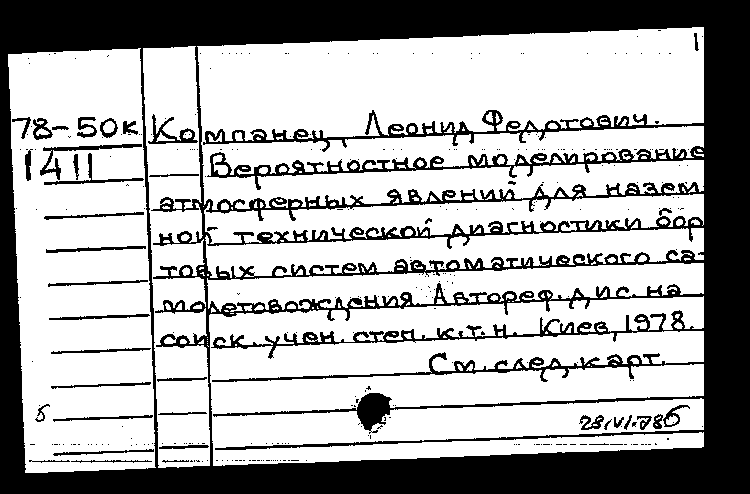 1
78-50к Компанец, Леонид Федотович.
1411 Вероятностное моделирование
атмосферных явлений для назем
ной технической диагностики бор
товых систем автоматического са-
молетовождения. Автореф. дис. на
соиск. учен. степ. к.т.н. Киев, 1978.
См. след. карт.
б